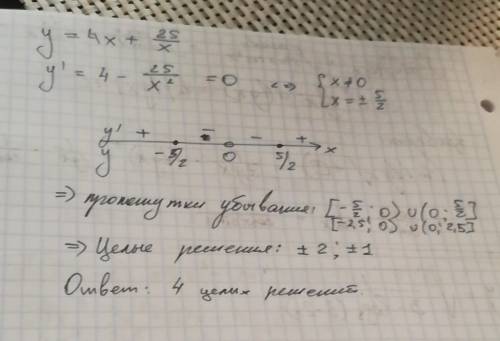 y = 4x + 25/x
y' = 4 - 25/x² = 0 <=> { x ≠ 0
x = ± 5/2
y' + - - +
y -5/2 0 5/2 x
=> промежутки убывания: [-5/2; 0) ∪ (0; 5/2]
[-2,5; 0) ∪ (0; 2,5]
=> Целые решения: ±2; ±1
Ответ: 4 целых решений.